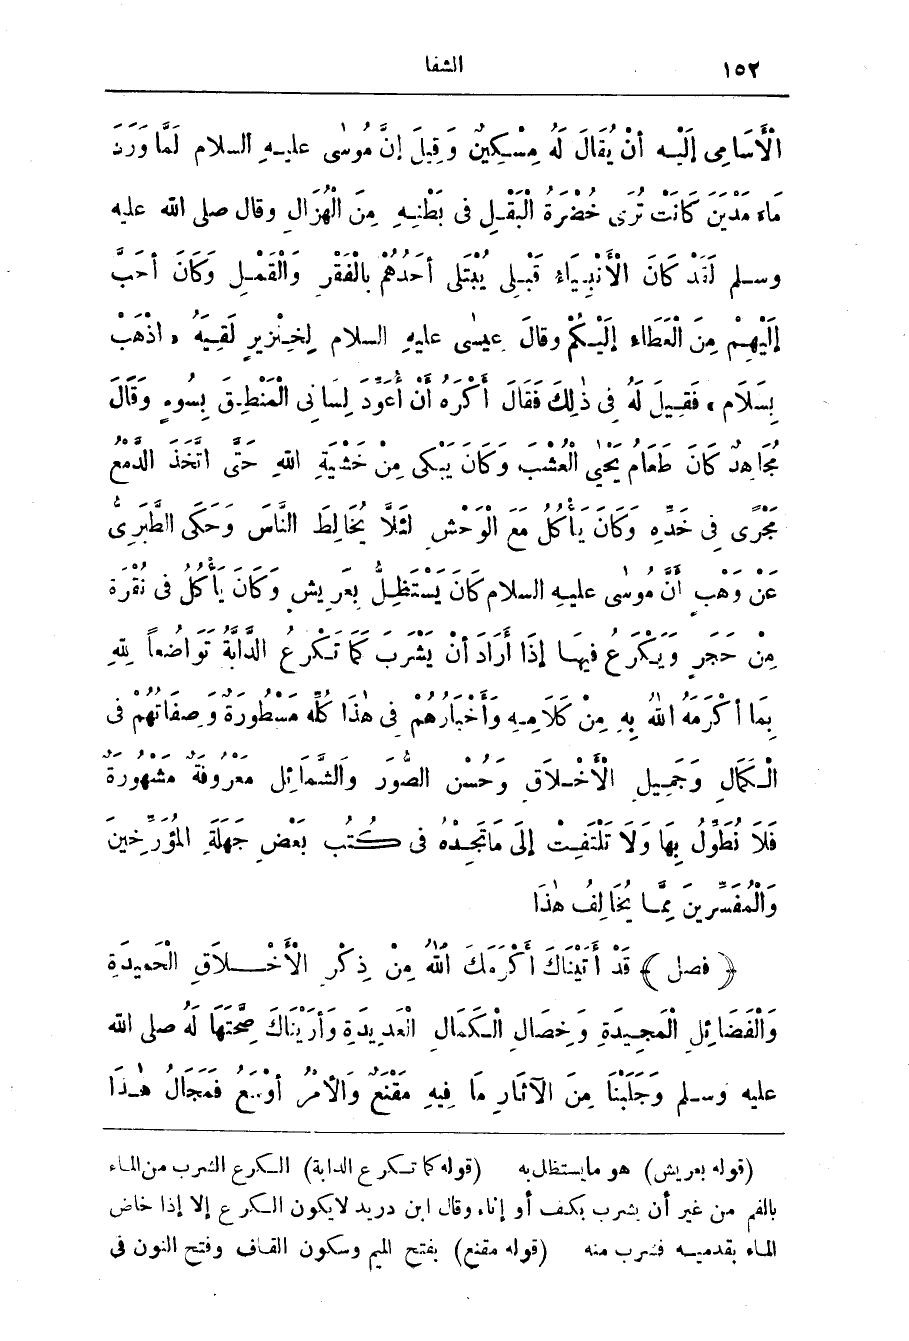 ١٥٢ الشفا
الْأَسَامِى إلَيْـه أنْ يُقَالَ لَهُ مِسْـكِينٌ وَقِيلَ إنَّ مُوسٰى عليـهِ السلام لَمَّا وَرَدَ
مَاءَ مَدْيَنَ كَانَتْ تُرَى خُضْرَةُ الْبَقْـلِ فى بَطْنِـهِ مِنَ الْهُزَالِ وقال صلى الله عليه
وسـلم لَقَدْ كَانَ الْأَنْبِـيَاءُ قَبْـلِى يُبْتَلى أحَدُهُمْ بِالْفَقْرِ وَالْقَمْـلِ وَكَانَ أحَبَّ
إلَيْهِـمْ مِنَ الْعَطَاءِ إلَيْـكُمْ وقالَ عِيسٰى عليهِ السلام لِخِـنْزِيرٍ لَقِيَهُ ، اذْهَبْ
بِسَلَام ، فَقِـيلَ لَهُ فى ذٰلِكَ فَقَالَ أَكْرَهُ أَنْ أُعَوِّدَ لِسَانى الْمَنْطِـقَ بِسُوءٍ وَقَالَ
مُجَاهِدٌ كَانَ طَعَامُ يَحْيٰى الْعُشْبَ وَكَانَ يَبْكى مِنْ خَشْيَةِ اللهِ حَتَّى اتَّخَذَ الدَّمْعُ
مَجْرًى فى خَدِّهِ وَكَانَ يَأْكُلُ مَعَ الْوَحْشِ لِئَلَّا يُخَالِطَ النَّاسَ وَحَكَى الطَّبَرِىُّ
عَنْ وَهْبٍ أنَّ مُوسٰى عليـهِ السلام كَانَ يَسْتَظِـلُّ بِعَرِيشٍ وَكَانَ يَأْكُلُ فى نُقْرَةٍ
مِنْ حَجَرٍ وَيَـكْرَعُ فيهَـا إذَا أَرَادَ أنْ يَشْرَبَ كَمَا تَـكْرَعُ الدَّابَّةُ تَوَاضُعاً لِلهِ
بِمَا أَكْرَمَهُ اللهُ بِهِ مِنْ كَلَامِـهِ وَأَخْبَارُهُمْ فى هٰذَا كُلِّهِ مَسْطُورَةٌ وَصِفَاتُهُمْ فى
الْـكَمَالِ وَجَمِـيلِ الْأَخْـلَاقِ وَحُسْنِ الصُّوَرِ وَالشَّمَائِلِ مَعْرُوفَةٌ مَشْهُورَةٌ
فَلَا نُطَوِّلُ بِهَا وَلَا تَلْتَفِـتْ إلَى مَا تَجِدُهُ فى كُتُبِ بَعْضِ جَهَلَةِ المُؤَرِّخينَ
وَالْمُفَسِّرِينَ مِمَّـا يُخَالِفُ هٰذَا
﴿ فصل ﴾ قَدْ أَتَيْنَاكَ أَكْرَمَكَ اللهُ مِنْ ذِكْرِ الْأَخْـــلَاقِ الْحَمِيدَةِ
وَالْفَضَائِلِ الْمَجِـيدَةِ وَخِصَالِ الْـكَمَالِ الْعَدِيدَةِ وَأَرَيْنَاكَ صِحَّتَهَا لَهُ صلى الله
عليه وسـلم وَجَلَبْنَا مِنَ الْآثَارِ مَا فِيهِ مَقْنَعٌ وَالْأَمْرُ أَوْسَعُ فَمَجَالُ هٰـذَا
(قوله بعريش) هو مايستظل به (قوله كما تـكرع الدابة) الـكرع الشرب من المـاء
بالفم من غير أن يشرب بكف أو إناء وقال ابن دريد لايكون الـكرع إلا إذا خاض
المـاء بقدميـه فشرب منه (قوله مقنع) بفتح الميم وسكون القاف وفتح النون فى